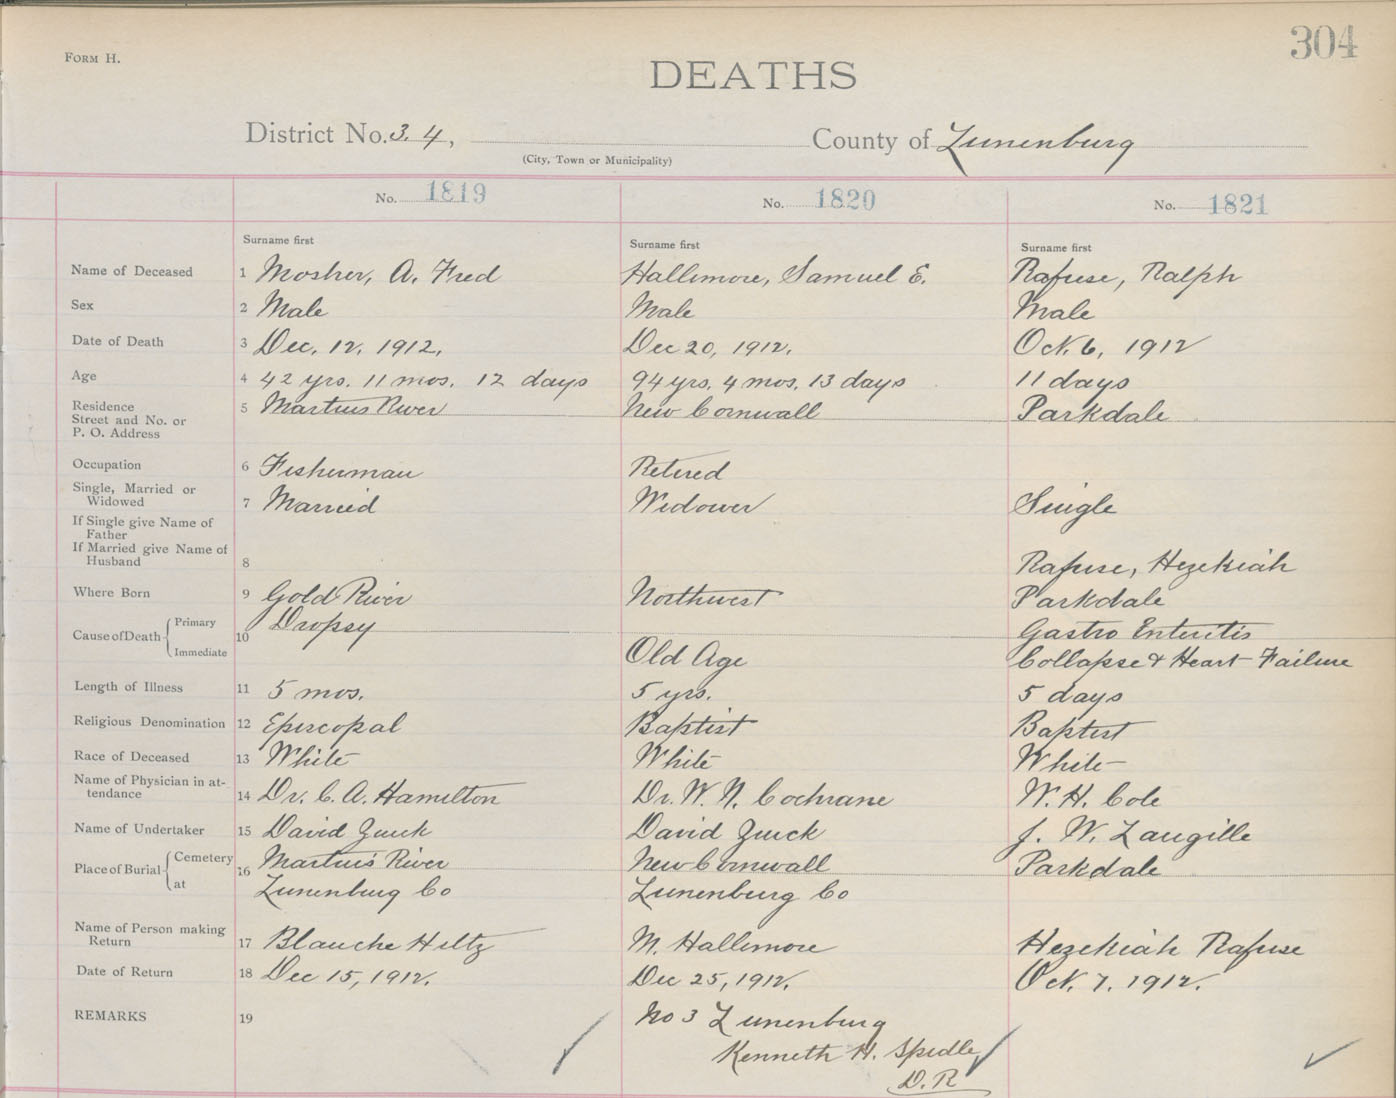 FORM H.
304
DEATHS
District No. 3. 4, County of Lunenburg
(City, Town or Municipality)
No. 1819 No. 1820 No. 1821
Surname first Surname first Surname first
Name of Deceased 1 Mosher, A. Fred Hallimore, Samuel E. Rafuse, Ralph
Sex 2 Male Male Male
Date of Death 3 Dec. 12, 1912. Dec 20, 1912. Oct. 6, 1912
Age 4 42 yrs. 11 mos. 12 days 94 yrs. 4 mos. 13 days 11 days
Residence
Street and No. or 5 Martins River New Cornwall Parkdale
P. O. Address
Occupation 6 Fisherman Retired
Single, Married or
Widowed 7 Married Widower Single
If Single give Name of
Father
If Married give Name of
Husband 8 Rafuse, Hezekiah
Where Born 9 Gold River Northwest Parkdale
Cause of Death Primary 10 Dropsy Gastro Enteritis
Immediate Old Age Collapse & Heart Failure
Length of Illness 11 5 mos. 5 yrs. 5 days
Religious Denomination 12 Episcopal Baptist Baptist
Race of Deceased 13 White White White
Name of Physician in at-
tendance 14 Dr. C. A. Hamilton Dr. W. N. Cochrane W. H. Cole
Name of Undertaker 15 David Zinck David Zinck J. W. Langille
Place of Burial Cemetery 16 Martin's River New Cornwall Parkdale
at Lunenburg Co Lunenburg Co
Name of Person making
Return 17 Blanche Hiltz M. Hallimore Hezekiah Rafuse
Date of Return 18 Dec 15, 1912. Dec 25, 1912. Oct. 7. 1912.
REMARKS 19 No 3 Lunenburg
Kenneth H. Spidle
D. R